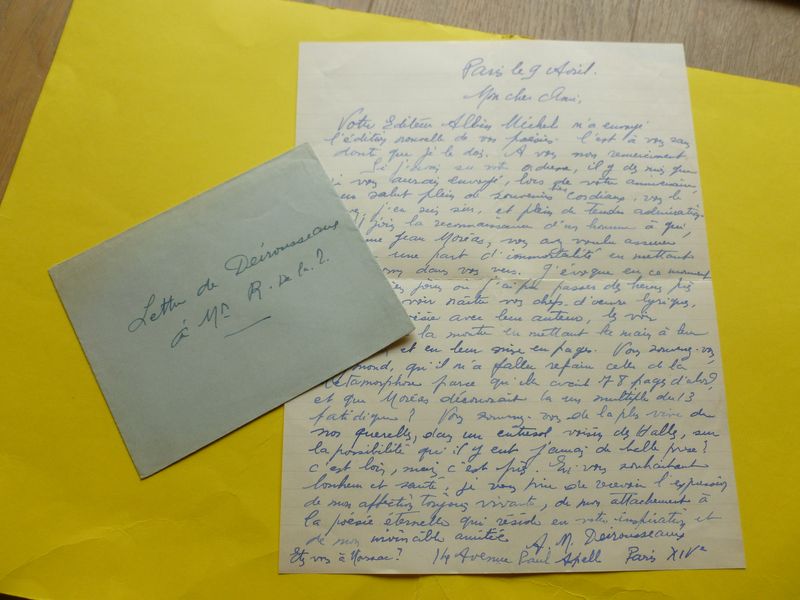 Lettre de Desrousseaux
à Mr R. de la ?
Paris le 9 Avril.
Mon cher Ami,
Votre Editeur Albin Michel m'a envoyé
l'édition nouvelle de vos poésies. C'est à vous sans
doute que je le dois. A vous mes remerciements
Si j'avais su votre adresse, il y a des mois que
vous aurais envoyé, lors de votre anniversaire,
un salut plein de souvenirs très cordiaux, vous le
j'en suis sûr, et plein de tendre admiration.
j'ois la reconnaissance d'un homme à qui,
Jean Moréas, vous avez voulu assurer
une part d'immortalité en mettant
nom dans vos vers. J'évoque en ce moment
jours où j'ai pu passer des heures
voir naître vos chefs d'œuvre lyriques,
avec leur auteur, les voir
la montre en mettant la main à leur
et en leur mise en pages. Vous souvenez-vous
qu'il m'a fallu refaire celles de la
Métamorphose parce qu'elle avait 78 pages d'abord
et que Moréas découvrait là un multiple du 13
fatidique ? Vous souvenez-vous de la plus vive de
nos querelles, dans un entresol voisin des Halles, sur
la possibilité qu'il y eut jamais de belle prose ?
C'est loin, mais c'est près. En vous souhaitant
bonheur et santé, je vous prie de recevoir l'expression
de mon affection toujours vivante, de mon attachement à
la poésie éternelle qui réside en votre inspiration et
de mon invincible amitié
A M. Desrousseaux
Etes vous à Moissac ? 14 Avenue Paul Appell Paris XIVe